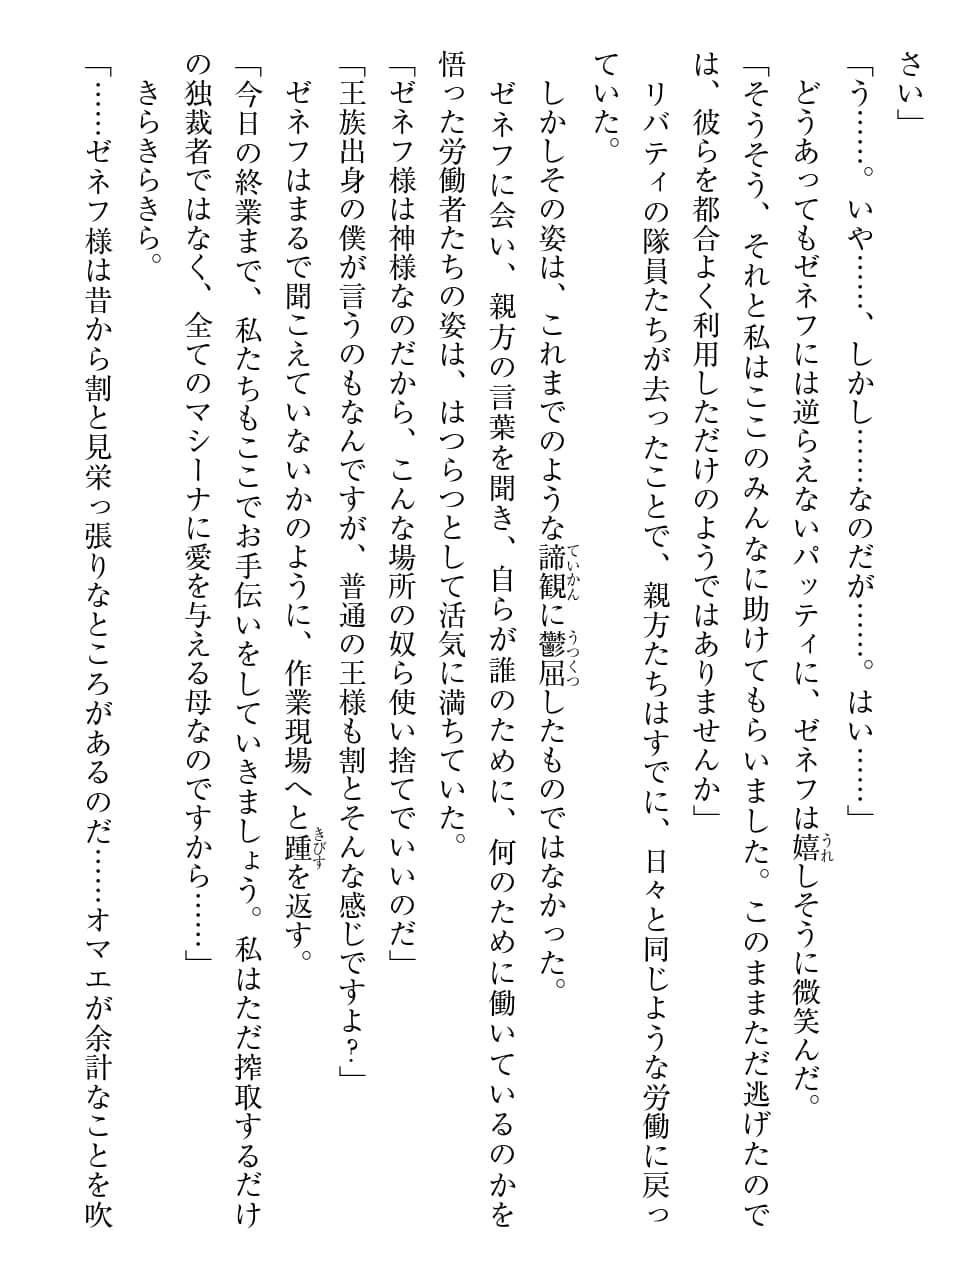 さい」
「う……。いや……、しかし……なのだが……。はい……」
どうあってもゼネフには逆らえないパッティに、ゼネフは嬉しそうに微笑んだ。
「そうそう、それと私はここのみんなに助けてもらいました。このままただ逃げたので
は、彼らを都合よく利用しただけのようではありませんか」
リバティの隊員たちが去ったことで、親方たちはすでに、日々と同じような労働に戻っ
ていた。
しかしその姿は、これまでのような諦観に鬱屈したものではなかった。
ゼネフに会い、親方の言葉を聞き、自らが誰のために、何のために働いているのかを
悟った労働者たちの姿は、はつらつとして活気に満ちていた。
「ゼネフ様は神様なのだから、こんな場所の奴ら使い捨てでいいのだ」
「王族出身の僕が言うのもなんですが、普通の王様も割とそんな感じですよ？」
ゼネフはまるで聞こえていないかのように、作業現場へと踵を返す。
「今日の終業まで、私たちもここでお手伝いをしていきましょう。私はただ搾取するだけ
の独裁者ではなく、全てのマシーナに愛を与える母なのですから……」
きらきらきら。
「……ゼネフ様は昔から割と見栄っ張りなところがあるのだ……オマエが余計なことを吹